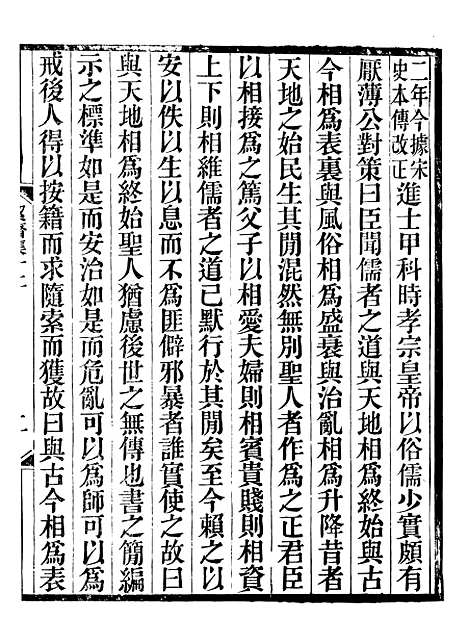 二年今據宋
史本傳改正
進士甲科時孝宗皇帝以俗儒少實頗有
厭薄公對策曰臣聞儒者之道與天地相爲終始與古
今相爲表裏與風俗相爲盛衰與治亂相爲升降昔者
天地之始民生其閒混然無別聖人者作爲之正君臣
以相接爲之篤父子以相愛夫婦則相賓貴賤則相資
上下則相維儒者之道已默行於其閒矣至今賴之以
安以佚以生以息而不爲匪僻邪暴者誰實使之故曰
與天地相爲終始聖人猶慮後世之無傳也書之簡編
示之標準如是而安治如是而危亂可以爲師可以爲
戒後人得以按籍而求隨索而獲故曰與古今相爲表